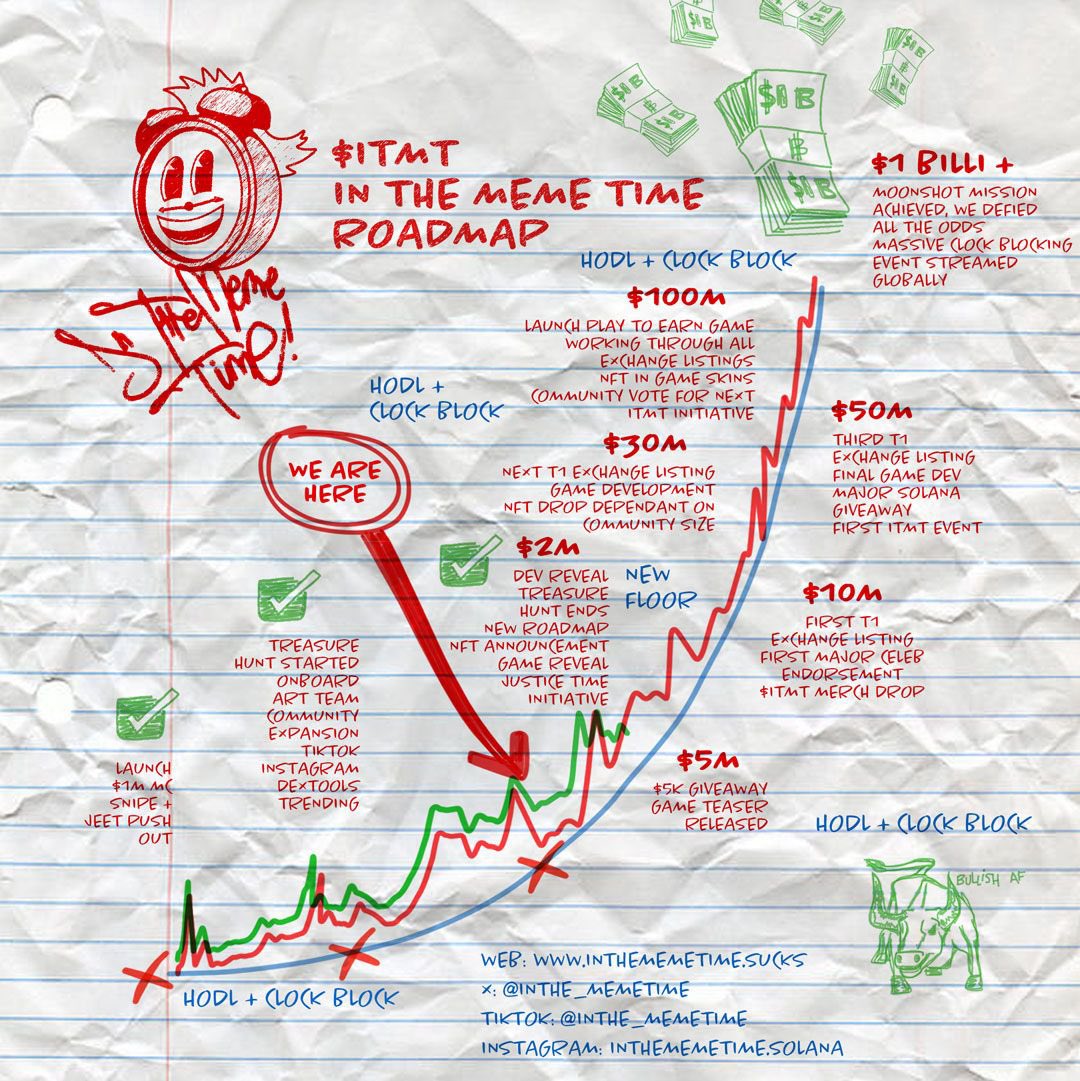 $1B
$1B
$1B
$1B
$1B
$1B
$ITMT
IN THE MEME TIME
ROADMAP
In The Meme
Time!
$1 BILLI +
MOONSHOT MISSION
ACHIEVED, WE DEFIED
ALL THE ODDS
MASSIVE CLOCK BLOCKING
EVENT STREAMED
GLOBALLY
HODL + CLOCK BLOCK
$100M
LAUNCH PLAY TO EARN GAME
WORKING THROUGH ALL
EXCHANGE LISTINGS
NFT IN GAME SKINS
COMMUNITY VOTE FOR NEXT
ITMT INITIATIVE
HODL +
CLOCK BLOCK
$50M
THIRD T1
EXCHANGE LISTING
FINAL GAME DEV
MAJOR SOLANA
GIVEAWAY
FIRST ITMT EVENT
$30M
NEXT T1 EXCHANGE LISTING
GAME DEVELOPMENT
NFT DROP DEPENDANT ON
COMMUNITY SIZE
WE ARE
HERE
$2M
DEV REVEAL
TREASURE
HUNT ENDS
NEW ROADMAP
NFT ANNOUNCEMENT
GAME REVEAL
JUSTICE TIME
INITIATIVE
NEW
FLOOR
$10M
FIRST T1
EXCHANGE LISTING
FIRST MAJOR CELEB
ENDORSEMENT
$ITMT MERCH DROP
TREASURE
HUNT STARTED
ONBOARD
ART TEAM
COMMUNITY
EXPANSION
TIKTOK
INSTAGRAM
DEXTOOLS
TRENDING
LAUNCH
$1M MC
SNIPE +
JEET PUSH
OUT
$5M
$5K GIVEAWAY
GAME TEASER
RELEASED
HODL + CLOCK BLOCK
BULLISH AF
HODL + CLOCK BLOCK
WEB: WWW.INTHEMEMETIME.SUCKS
X: @INTHE_MEMETIME
TIKTOK: @INTHE_MEMETIME
INSTAGRAM: INTHEMEMETIME.SOLANA